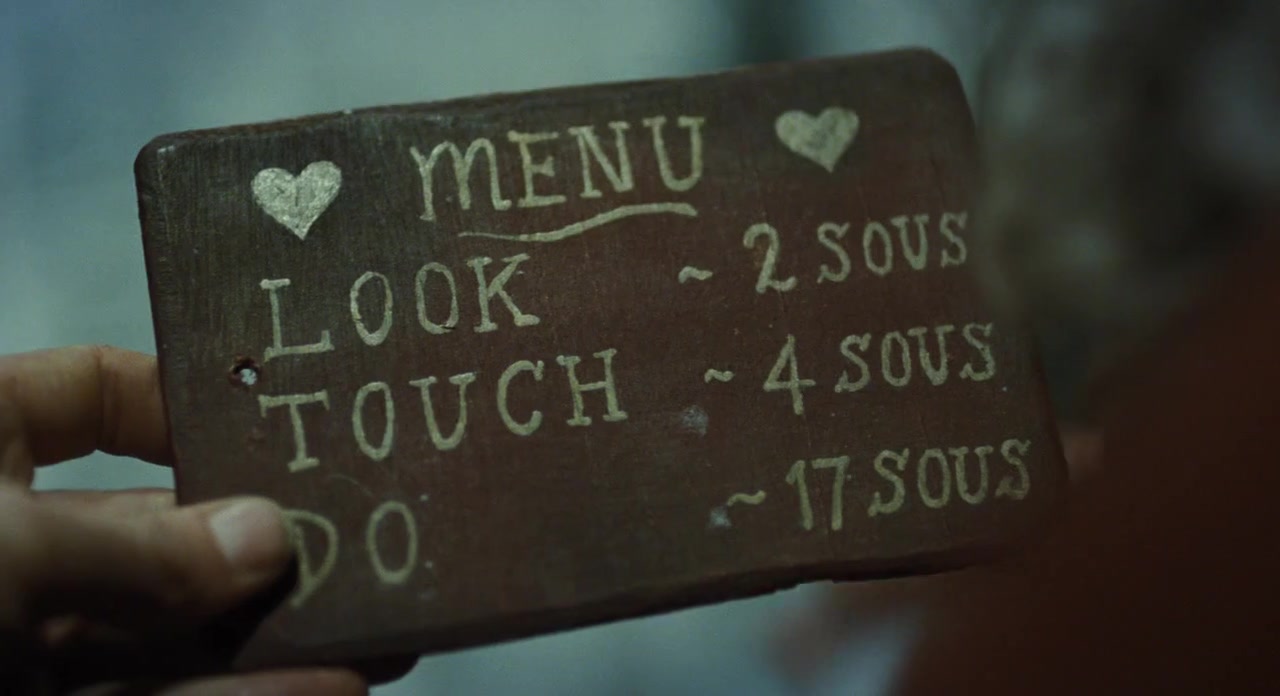 MENU
LOOK ~ 2 SOUS
TOUCH ~ 4 SOUS
DO ~ 17 SOUS